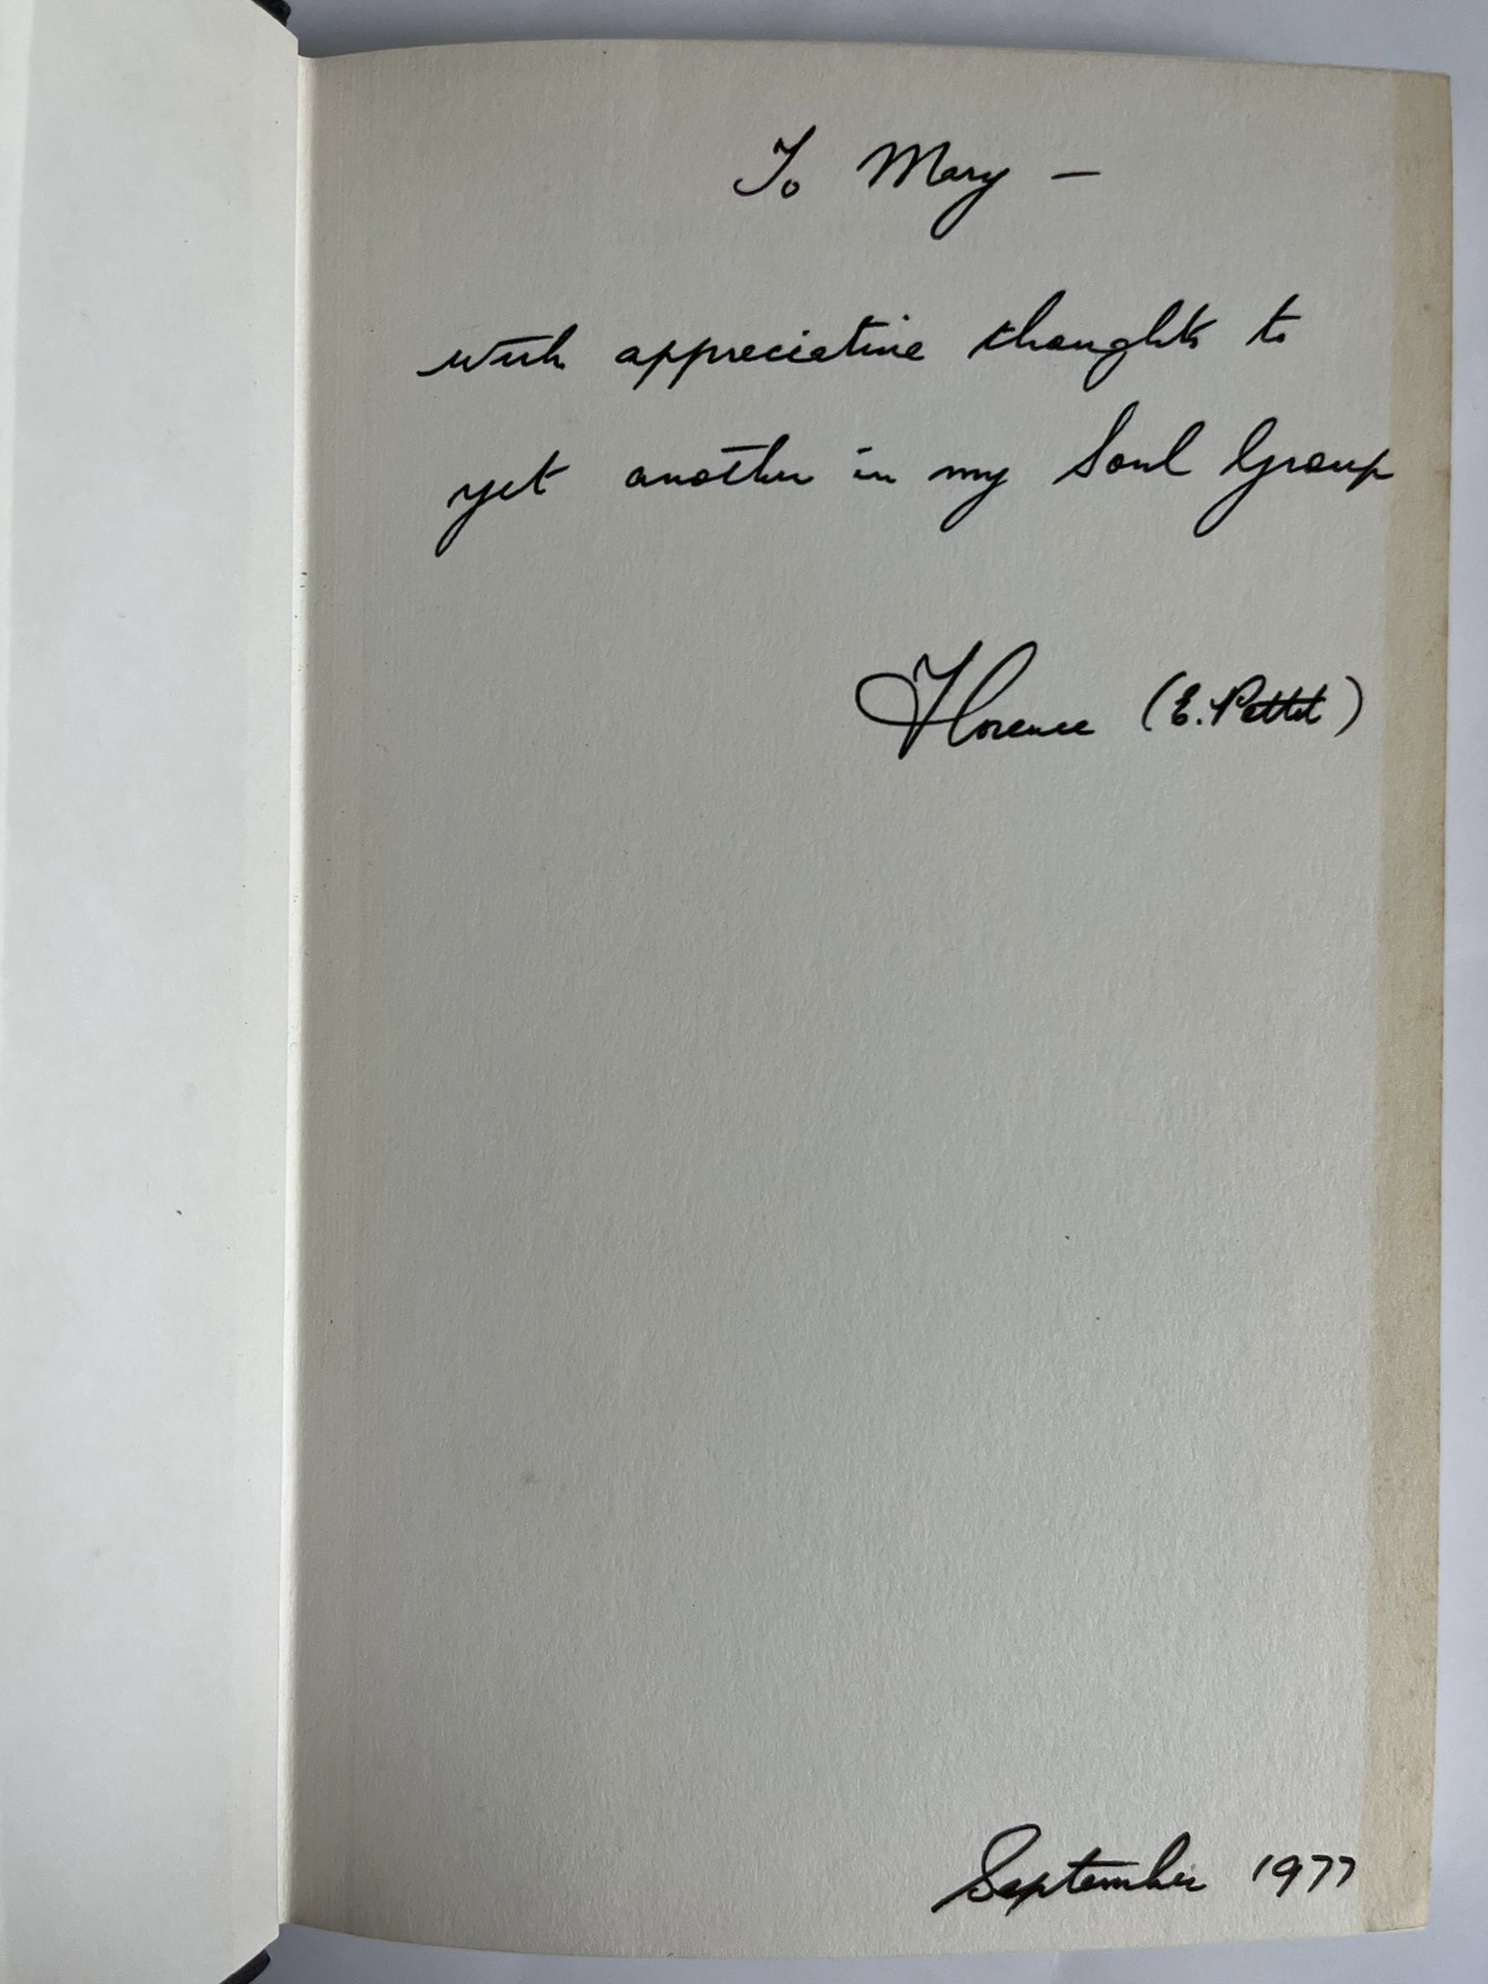 To Mary —
with appreciative thoughts to
yet another in my Soul Group
Florence (E. Pettit)
September 1977